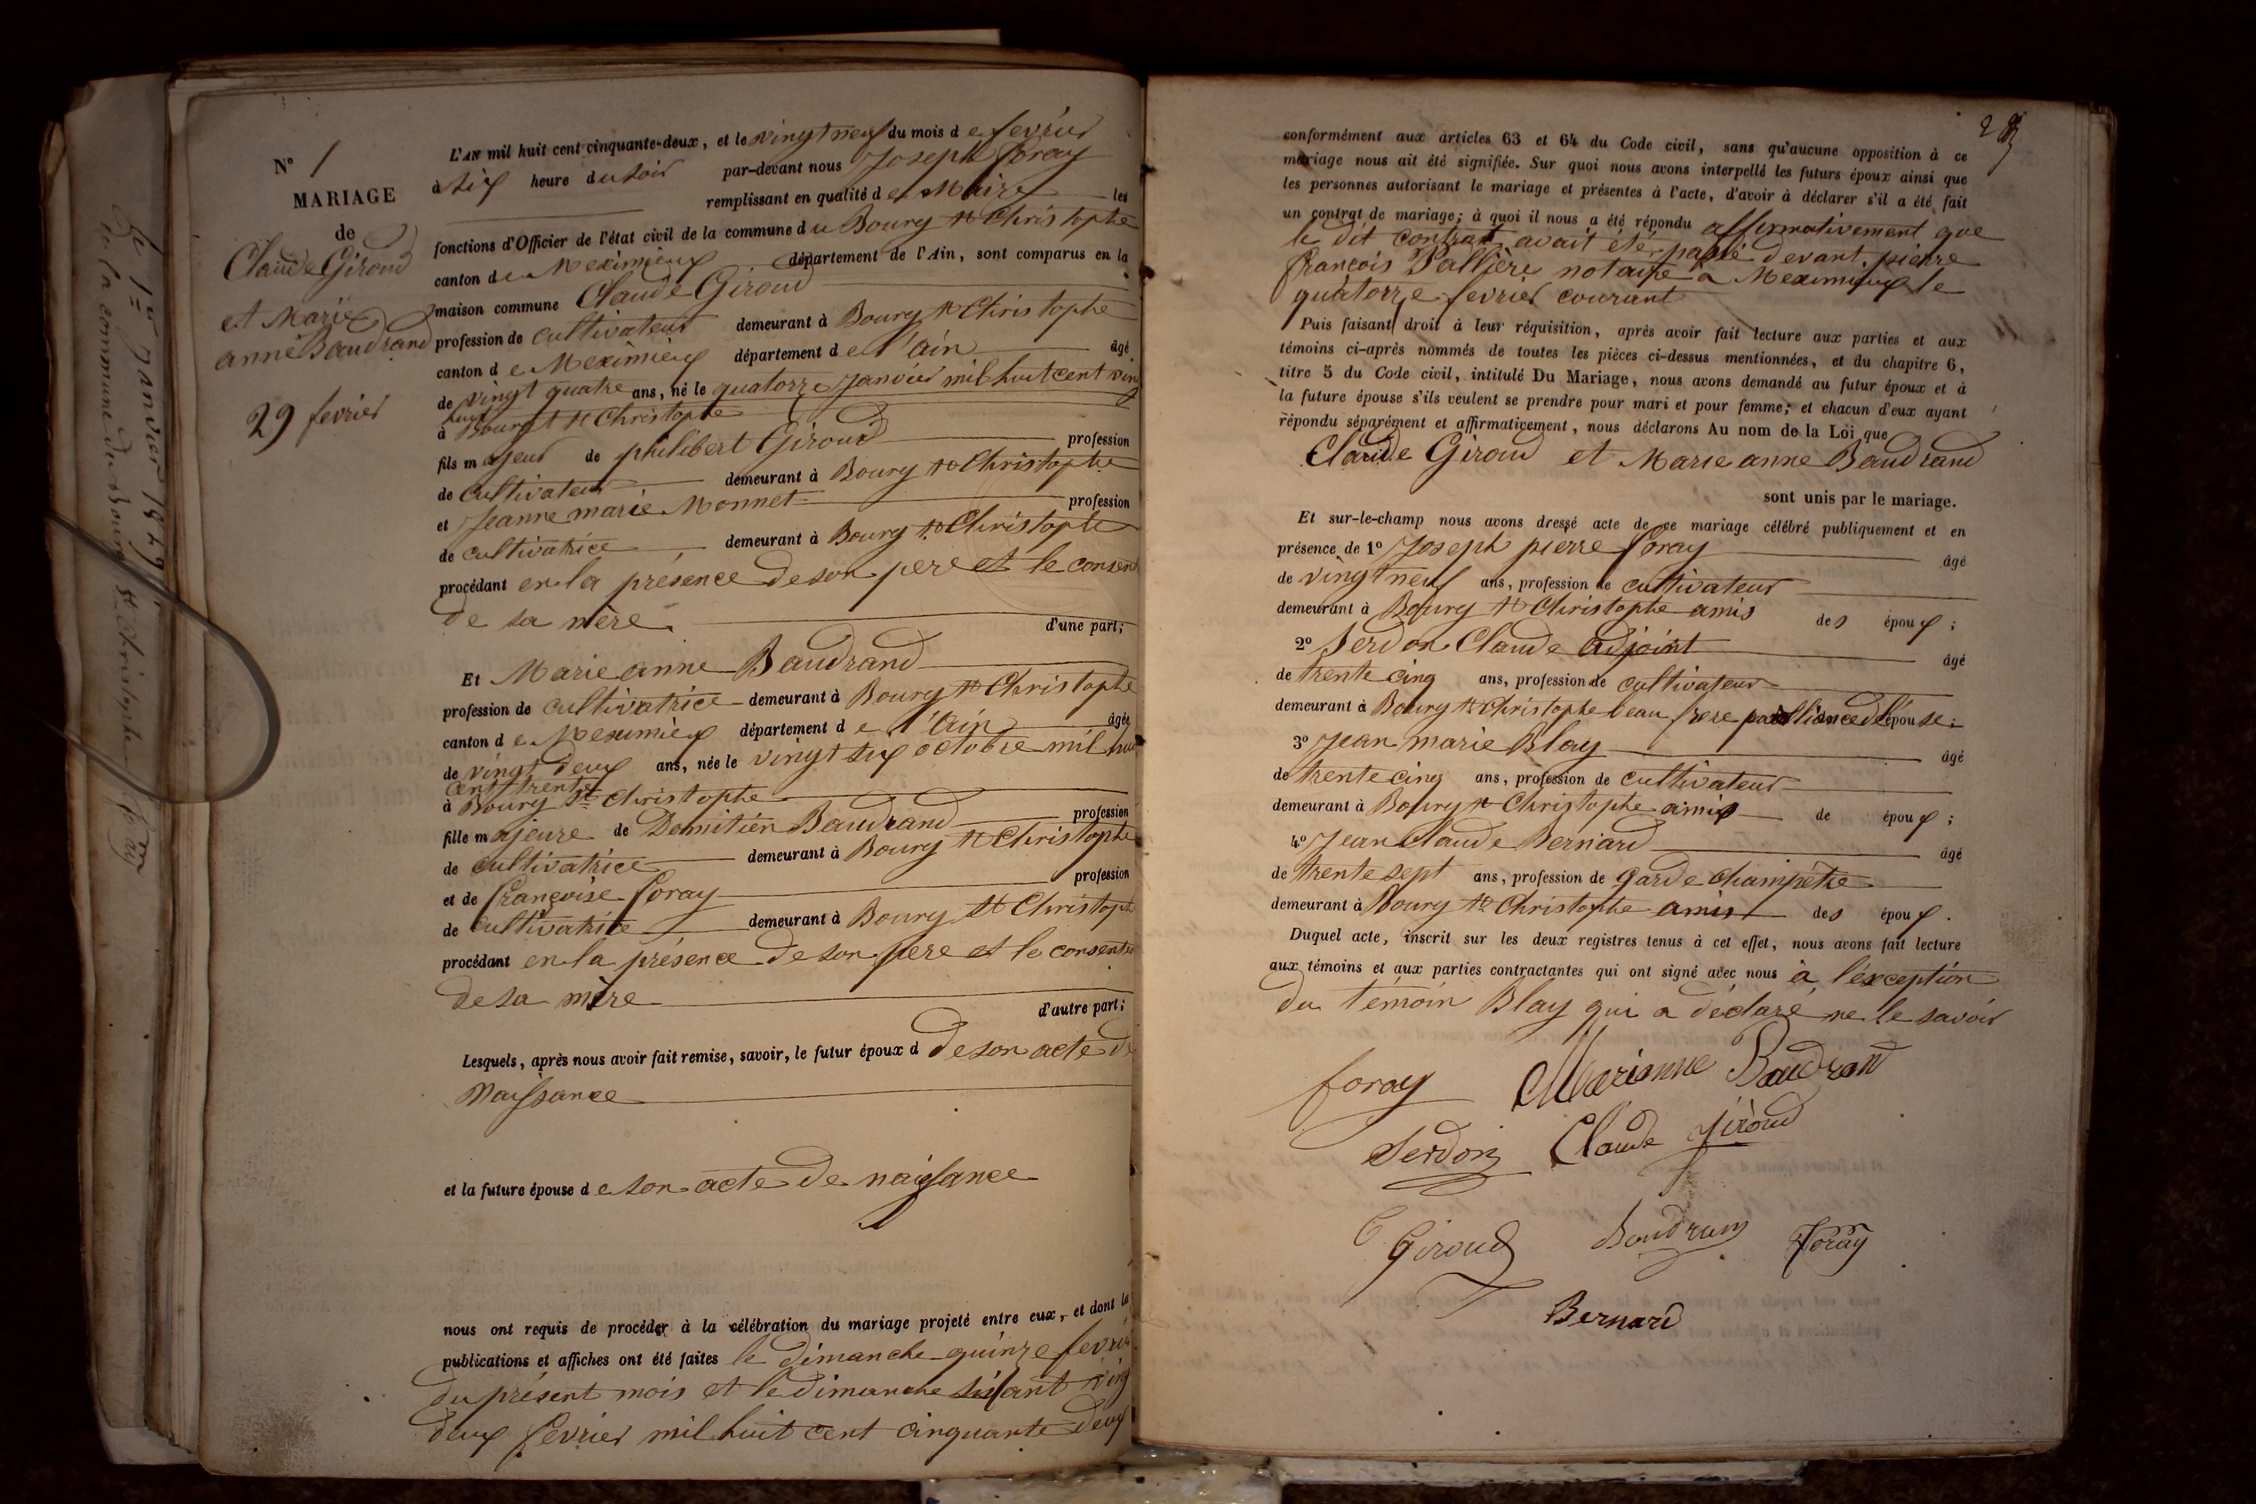 N° 1
MARIAGE
de
Claude Giroud
et Marie
anne Baudrand
29 fevrier
L'AN mil huit cent cinquante-deux, et le vingt neuf du mois de fevrier
à six heure du soir par-devant nous Joseph foray
remplissant en qualité de Maire les
fonctions d'Officier de l'état civil de la commune du Bourg St Christophe
canton de Meximieux département de l'Ain, sont comparus en la
maison commune Claude Giroud
profession de cultivateur demeurant à Bourg St Christophe
canton de Meximieux département de l'ain âgé
de vingt quatre ans, né le quatorze janvier mil huit cent vingt
huit
à Bourg St Christophe
fils majeur de philibert Giroud profession
de cultivateur demeurant à Bourg St Christophe
et Jeanne marie Monnet profession
de cultivatrice demeurant à Bourg St Christophe
procédant en la présence de son pere et le consen
de sa mère d'une part;
Et Marie anne Baudrand
profession de cultivatrice demeurant à Bourg St Christophe
canton de Meximieux département de l'ain âgée
de vingt deux ans, née le vingt six octobre mil huit
cent trente
à Bourg St Christophe
fille majeure de Domitien Baudrand profession
de cultivatrice demeurant à Bourg St Christophe
et de françoise foray profession
de cultivatrice demeurant à Bourg St Christophe
procédant en la présence de son pere et le consente
de sa mère
d'autre part;
Lesquels, après nous avoir fait remise, savoir, le futur époux d de son acte de
Naissance
et la future épouse de son acte de naissance
nous ont requis de procéder à la célébration du mariage projeté entre eux, et dont la
publications et affiches ont été faites le dimanche quinze fevrier
du présent mois et le dimanche suivant ving
deux fevrier mil huit cent cinquante deux
conformément aux articles 63 et 64 du Code civil, sans qu'aucune opposition à ce
mariage nous ait été signifiée. Sur quoi nous avons interpellé les futurs époux ainsi que
les personnes autorisant le mariage et présentes à l'acte, d'avoir à déclarer s'il a été fait
un contrat de mariage; à quoi il nous a été répondu affirmativement que
le dit contrat avait été passé devant pierre
françois Pallière notaire à Meximieux le
quatorze fevrier courant
Puis faisant droit à leur réquisition, après avoir fait lecture aux parties et aux
témoins ci-après nommés de toutes les pièces ci-dessus mentionnées, et du chapitre 6,
titre 5 du Code civil, intitulé Du Mariage, nous avons demandé au futur époux et à
la future épouse s'ils veulent se prendre pour mari et pour femme; et chacun d'eux ayant
répondu séparément et affirmativement, nous déclarons Au nom de la Loi que
Claude Giroud et Marie anne Baudrand
sont unis par le mariage.
Et sur-le-champ nous avons dressé acte de ce mariage célébré publiquement et en
présence de 1° Joseph pierre foray âgé
de vingt neuf ans, profession de cultivateur
demeurant à Bourg St Christophe amis des époux;
2° Serdon Claude adjoint âgé
de trente cinq ans, profession de cultivateur
demeurant à Bourg St Christophe beau frere par alliance de l'épouse;
3° Jean marie Blay âgé
de trente cinq ans, profession de cultivateur
demeurant à Bourg St Christophe amis de époux;
4° Jean Claude Bernard âgé
de trente sept ans, profession de garde champêtre
demeurant à Bourg St Christophe amis des époux.
Duquel acte, inscrit sur les deux registres tenus à cet effet, nous avons fait lecture
aux témoins et aux parties contractantes qui ont signé avec nous à l'exception
du témoin Blay qui a déclaré ne le savoir
foray Marianne Baudrand
Serdon Claude Giroud
Giroud Baudrand foray
Bernard
Le 1er janvier 1849
de la commune du Bourg St Christophe